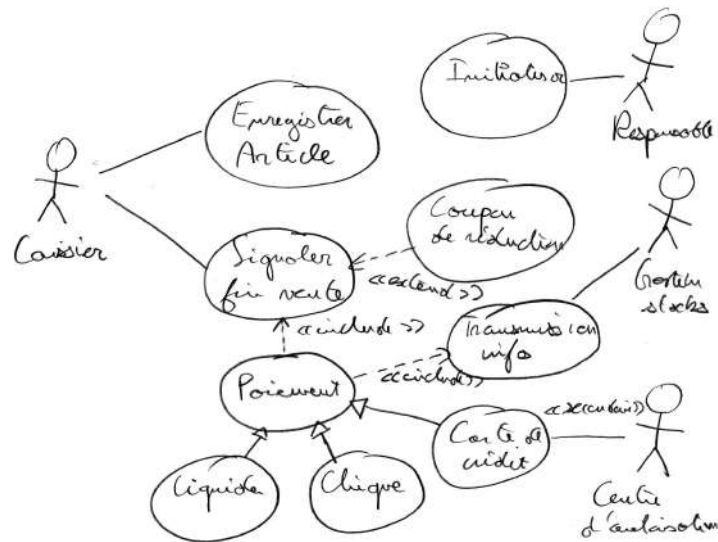 Initialiser
Responsable
Enregistrer
Article
Caissier
Coupon
de réduction
Signaler
fin vente
<<extend>>
Gestion
stocks
<<include>>
Transmission
infos
Paiement
<<include>>
Carte de
crédit
Liquide
Chèque
Centre